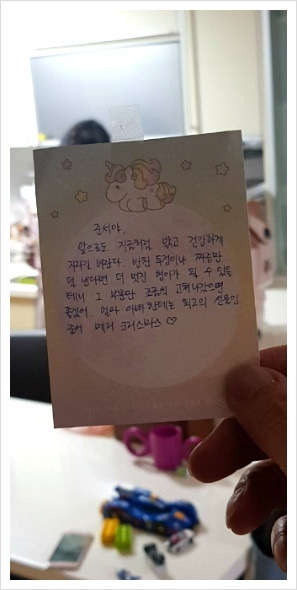 준서야,
앞으로도 지금처럼 밝고 건강하게
자라길 바란다. 반찬 투정이나 짜증만
덜 낸다면 더 멋진 형아가 될 수 있을
테니 그 부분만 조금씩 고쳐나갔으면
좋겠어. 엄마 아빠한테는 최고의 선물인
준서 메리 크리스마스 ♡